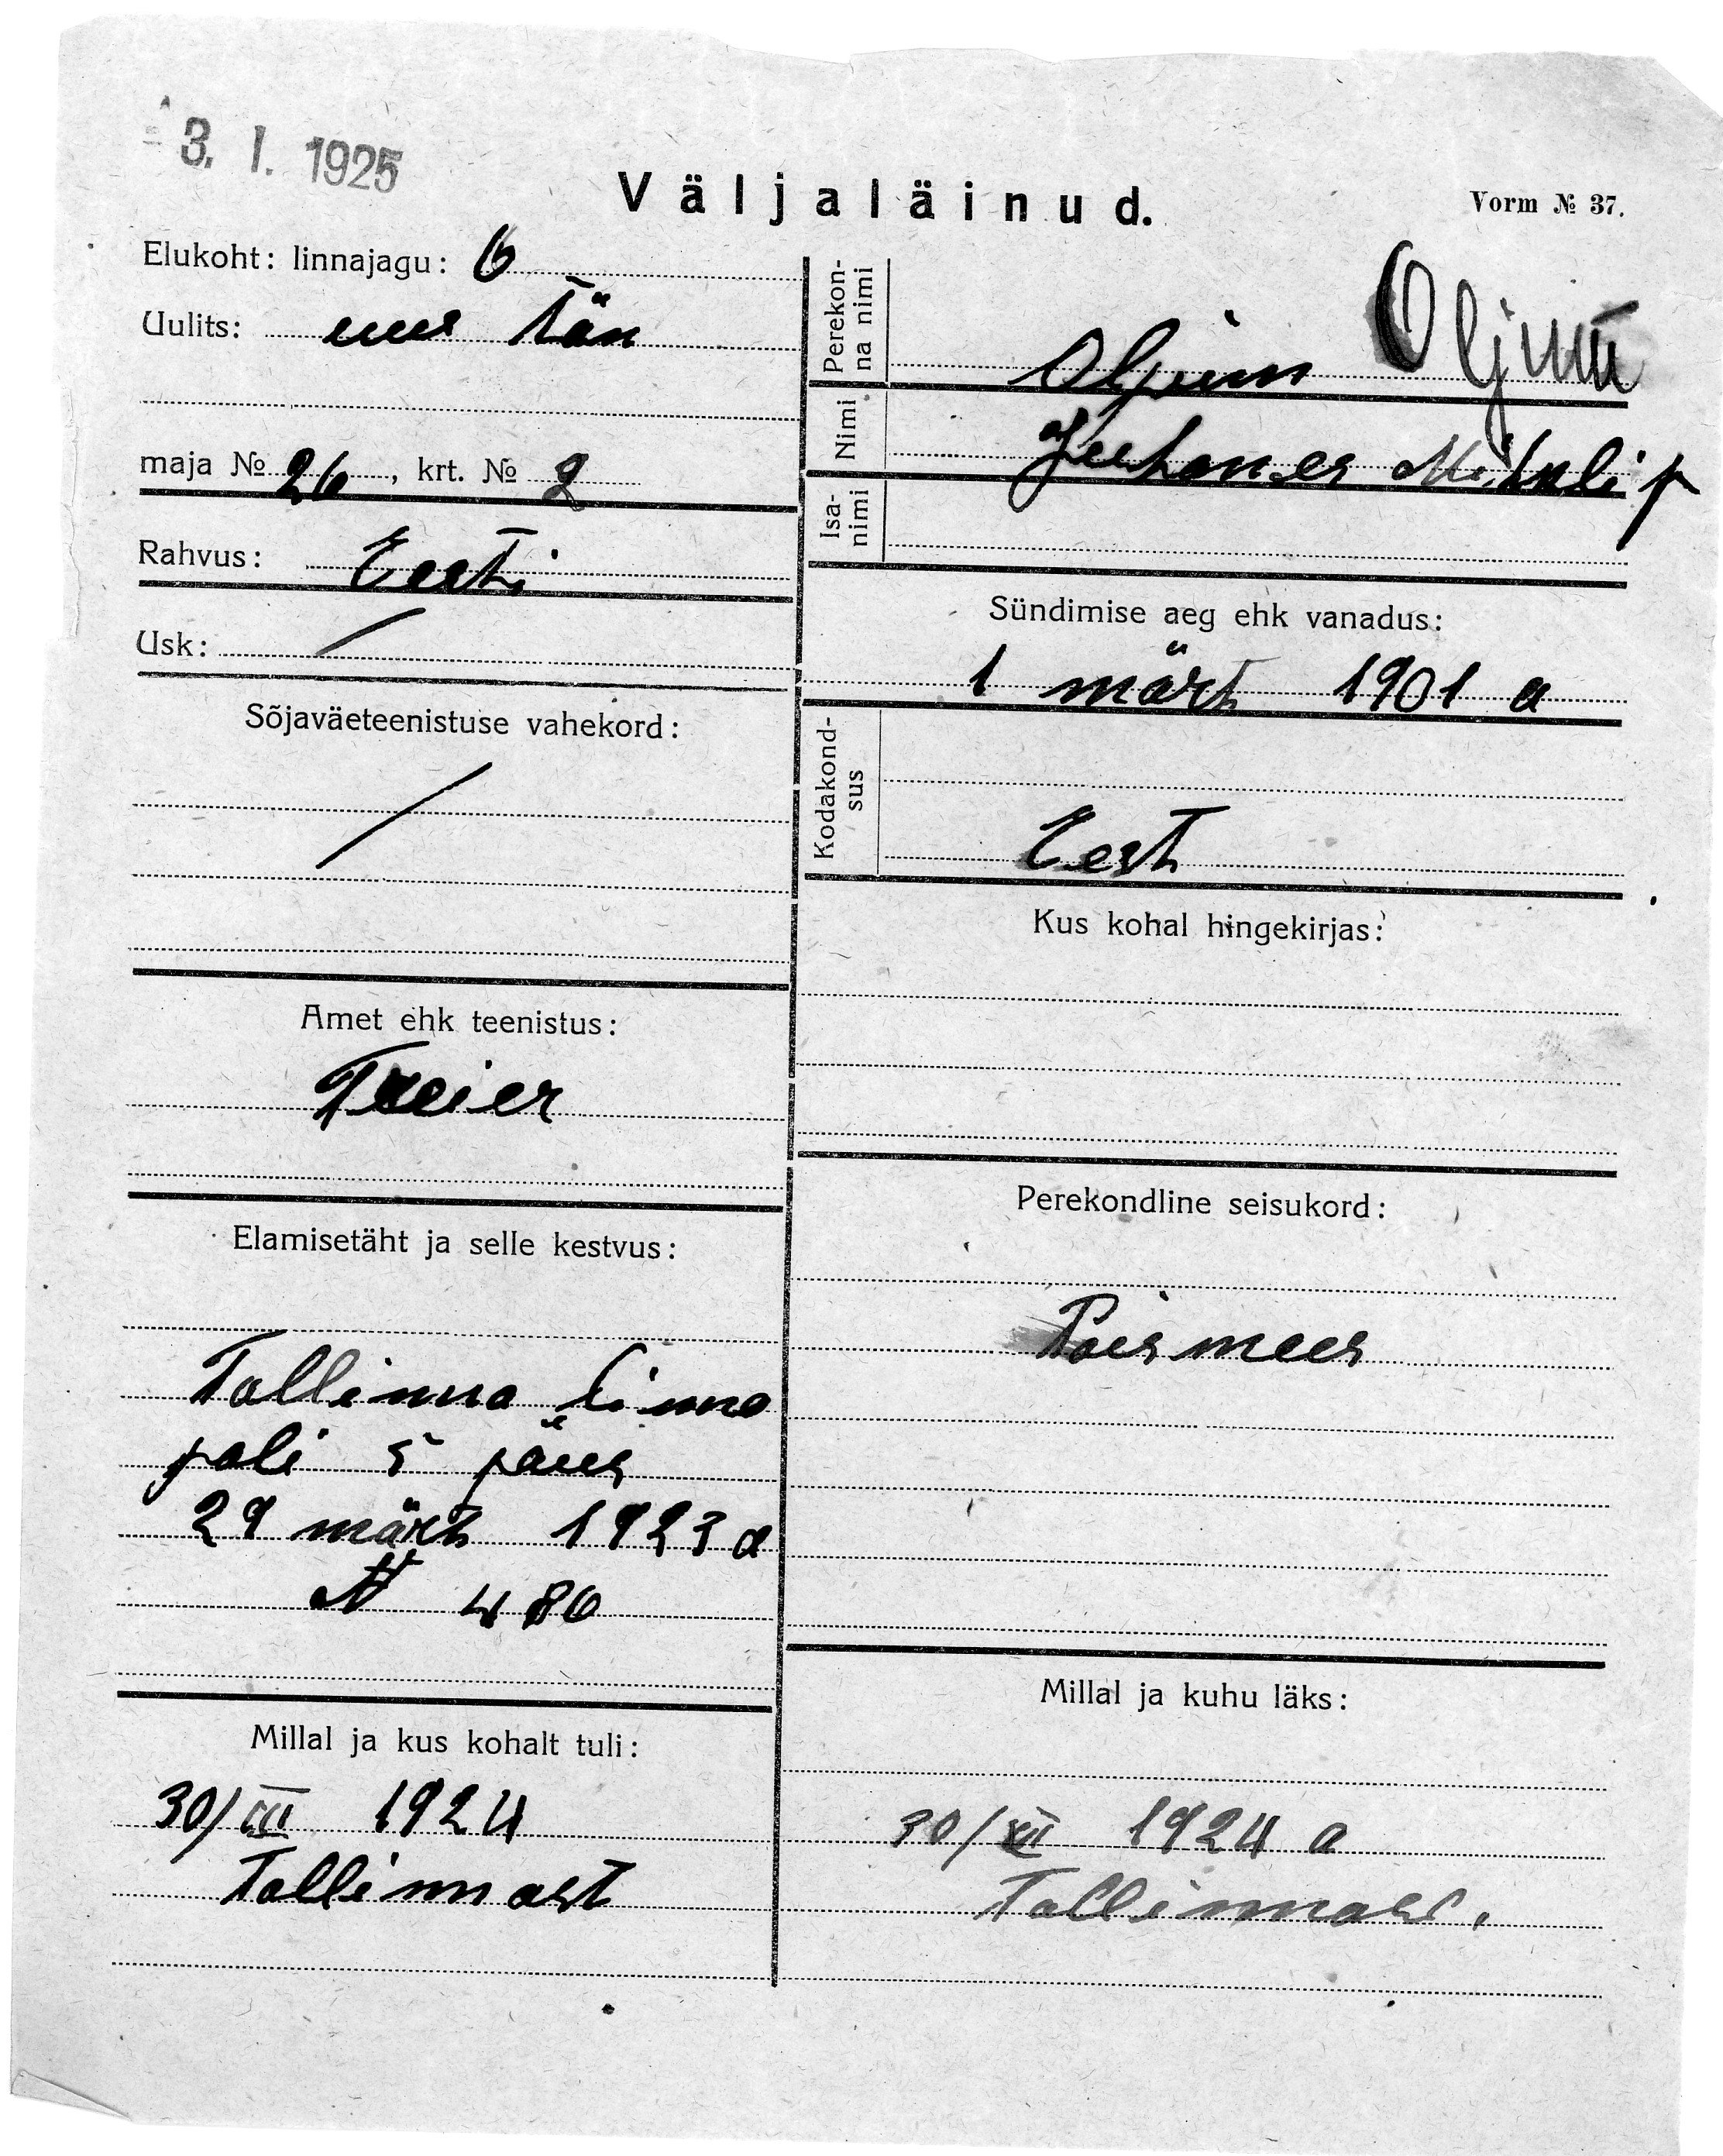 3. I. 1925
Väljaläinud.
Vorm № 37.
Elukoht: linnajagu: 6
Uulits: uus Tän
maja № 26, krt. № 2
Rahvus: Eesti
Usk: /
Sõjaväeteenistuse vahekord:
/
Amet ehk teenistus:
Treier
Elamisetäht ja selle kestvus:
Tallinna linna
poli 5 päus
29 märts 1923 a
N 486
Millal ja kus kohalt tuli:
30/III 1924
Tallinnast
Perekonna nimi
Oljum Oljum
Nimi
Juhanes Mihkli p
Isanimi
Sündimise aeg ehk vanadus:
1 märts 1901 a
Kodakondsus
Eesti
Kus kohal hingekirjas:
Perekondline seisukord:
Poismees
Millal ja kuhu läks:
30/XII 1924 a
Tallinnast.